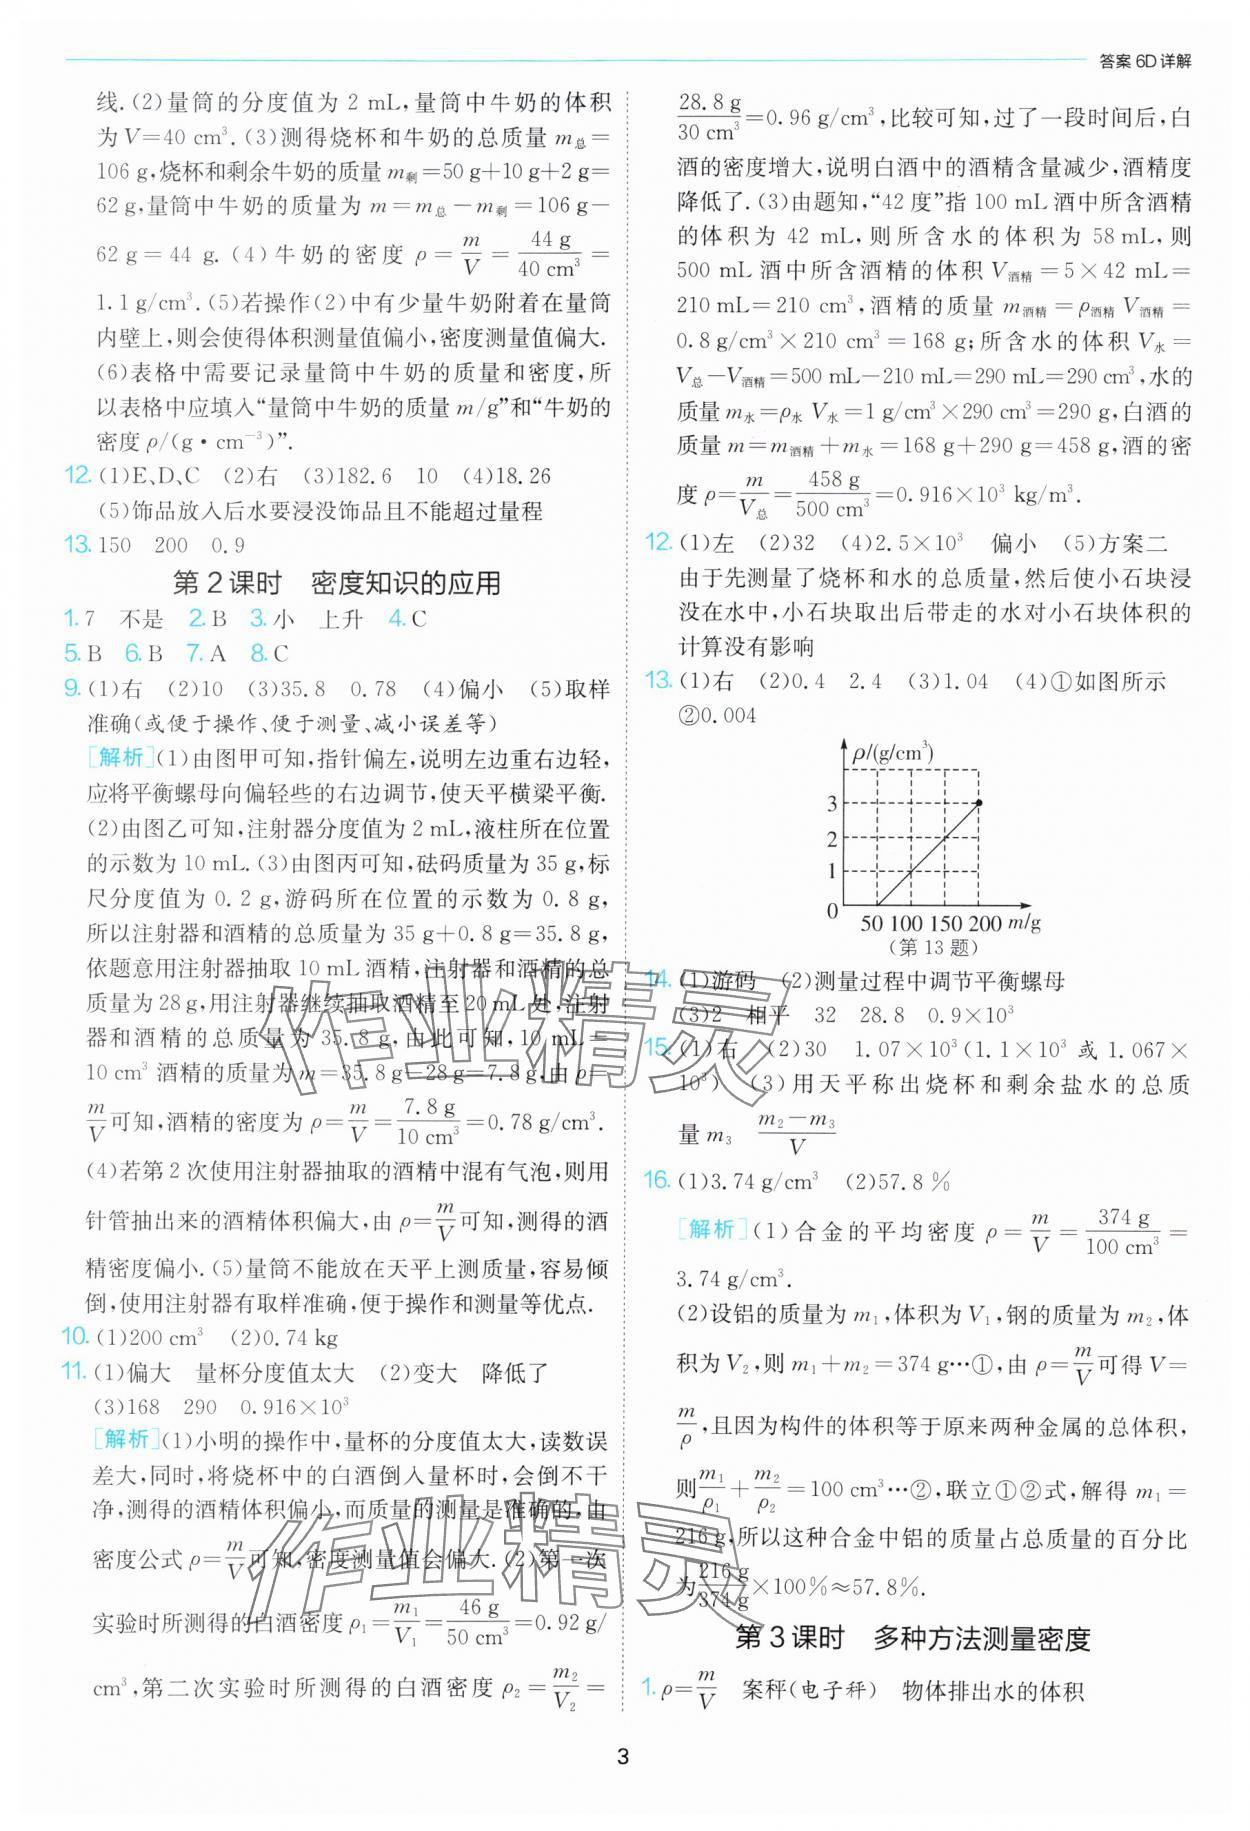 答案 6D 详解
线.(2)量筒的分度值为 2 mL,量筒中牛奶的体积
为V=40 cm³.(3)测得烧杯和牛奶的总质量 m总=
106 g,烧杯和剩余牛奶的质量 m剩=50 g+10 g+2 g=
62 g,量筒中牛奶的质量为 m=m总-m剩=106 g-
62 g=44 g.(4)牛奶的密度 ρ=m/V=44 g/40 cm³=
1.1 g/cm³.(5)若操作(2)中有少量牛奶附着在量筒
内壁上,则会使得体积测量值偏小,密度测量值偏大.
(6)表格中需要记录量筒中牛奶的质量和密度,所
以表格中应填入“量筒中牛奶的质量 m/g”和“牛奶的
密度 ρ/(g·cm⁻³)”.
12. (1)E、D、C (2)右 (3)182.6 10 (4)18.26
(5)饰品放入后水要浸没饰品且不能超过量程
13. 150 200 0.9
第 2 课时 密度知识的应用
1. 7 不是 2. B 3. 小 上升 4. C
5. B 6. B 7. A 8. C
9. (1)右 (2)10 (3)35.8 0.78 (4)偏小 (5)取样
准确(或便于操作、便于测量、减小误差等)
[解析](1)由图甲可知,指针偏左,说明左边重右边轻,
应将平衡螺母向偏轻些的右边调节,使天平横梁平衡.
(2)由图乙可知,注射器分度值为 2 mL,液柱所在位置
的示数为 10 mL.(3)由图丙可知,砝码质量为 35 g,标
尺分度值为 0.2 g,游码所在位置的示数为 0.8 g,
所以注射器和酒精的总质量为 35 g+0.8 g=35.8 g,
依题意用注射器抽取 10 mL 酒精,注射器和酒精的总
质量为 28 g,用注射器继续抽取酒精至 20 mL 处,注射
器和酒精的总质量为 35.8 g,由此可知,10 mL=
10 cm³ 酒精的质量为 m=35.8 g-28 g=7.8 g,由 ρ=
m/V可知,酒精的密度为 ρ=m/V=7.8 g/10 cm³=0.78 g/cm³.
(4)若第 2 次使用注射器抽取的酒精中混有气泡,则用
针管抽出来的酒精体积偏大,由 ρ=m/V可知,测得的酒
精密度偏小.(5)量筒不能放在天平上测质量,容易倾
倒,使用注射器有取样准确,便于操作和测量等优点.
10. (1)200 cm³ (2)0.74 kg
11. (1)偏大 量杯分度值太大 (2)变大 降低了
(3)168 290 0.916×10³
[解析](1)小明的操作中,量杯的分度值太大,读数误
差大,同时,将烧杯中的白酒倒入量杯时,会倒不干
净,测得的酒精体积偏小,而质量的测量是准确的,由
密度公式 ρ=m/V可知,密度测量值会偏大.(2)第一次
实验时所测得的白酒密度 ρ₁=m₁/V₁=46 g/50 cm³=0.92 g/
cm³,第二次实验时所测得的白酒密度 ρ₂=m₂/V₂=
28.8 g/30 cm³=0.96 g/cm³,比较可知,过了一段时间后,白
酒的密度增大,说明白酒中的酒精含量减少,酒精度
降低了.(3)由题知,“42 度”指 100 mL 酒中所含酒精
的体积为 42 mL,则所含水的体积为 58 mL,则
500 mL 酒中所含酒精的体积 V酒精=5×42 mL=
210 mL=210 cm³,酒精的质量 m酒精=ρ酒精 V酒精=
0.8 g/cm³×210 cm³=168 g;所含水的体积 V水=
V总-V酒精=500 mL-210 mL=290 mL=290 cm³,水的
质量 m水=ρ水 V水=1 g/cm³×290 cm³=290 g,白酒的
质量 m=m酒精+m水=168 g+290 g=458 g,酒的密
度 ρ=m/V总=458 g/500 cm³=0.916×10³ kg/m³.
12. (1)左 (2)32 (4)2.5×10³ 偏小 (5)方案二
由于先测量了烧杯和水的总质量,然后使小石块浸
没在水中,小石块取出后带走的水对小石块体积的
计算没有影响
13. (1)右 (2)0.4 2.4 (3)1.04 (4)①如图所示
②0.004
ρ/(g/cm³)
3
2
1
0 50 100 150 200 m/g
(第 13 题)
14. (1)游码 (2)测量过程中调节平衡螺母
(3)2 相平 32 28.8 0.9×10³
15. (1)右 (2)30 1.07×10³(1.1×10³ 或 1.067×
10³) (3)用天平称出烧杯和剩余盐水的总质
量 m₃ (m₂-m₃)/V
16. (1)3.74 g/cm³ (2)57.8%
[解析](1)合金的平均密度 ρ=m/V=374 g/100 cm³=
3.74 g/cm³.
(2)设铝的质量为 m₁,体积为 V₁,钢的质量为 m₂,体
积为 V₂,则 m₁+m₂=374 g…①,由 ρ=m/V可得 V=
m/ρ,且因为构件的体积等于原来两种金属的总体积,
则m₁/ρ₁+m₂/ρ₂=100 cm³…②,联立①②式,解得 m₁=
216 g,所以这种合金中铝的质量占总质量的百分比
为216 g/374 g×100%≈57.8%.
第 3 课时 多种方法测量密度
1. ρ=m/V 案秤(电子秤) 物体排出水的体积
3
作业精灵
作业精灵